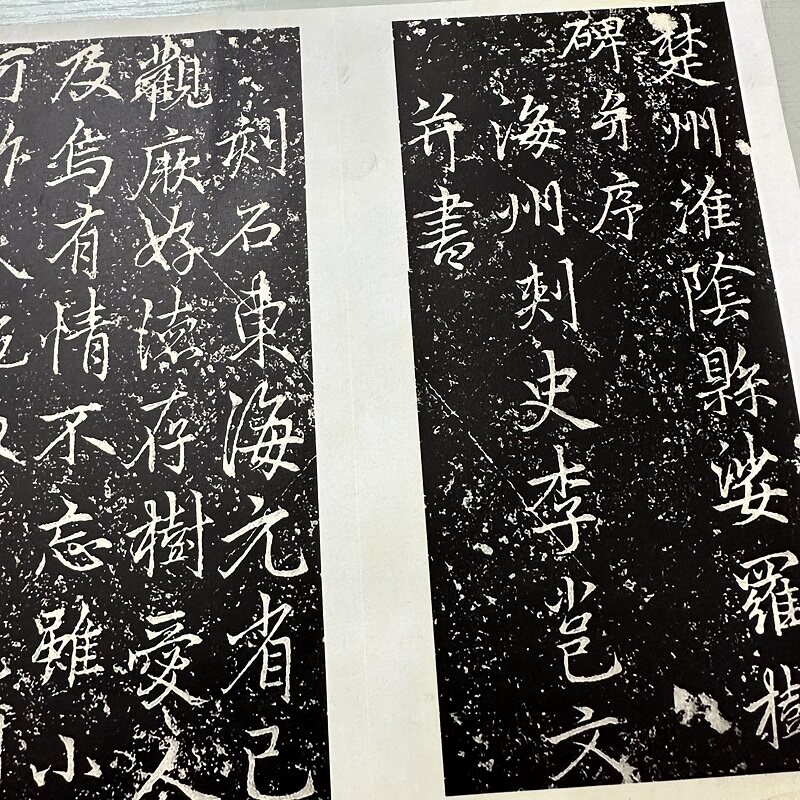 楚州淮陰縣娑羅樹
碑并序
海州刺史李邕文
并書
刻石東海元省已
觀厥好德存樹愛人
及烏有情不忘雖小